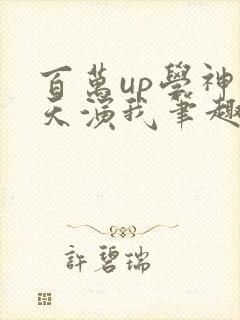 百萬up學神
天演我筆趣
許碧瑞